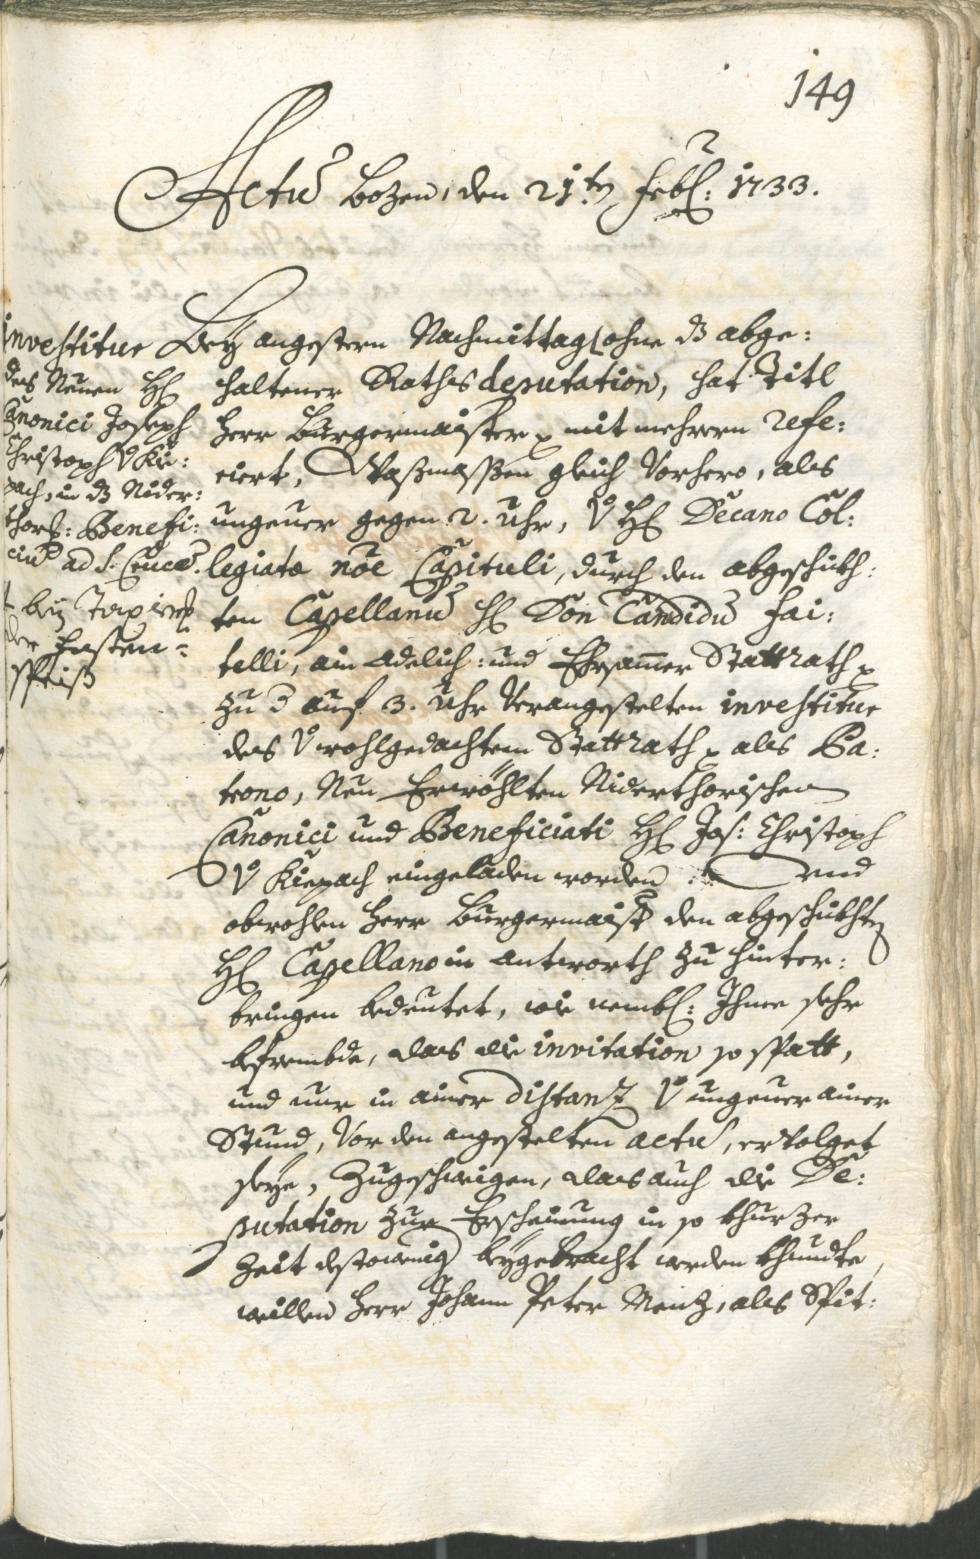 149
Actũ Bozen, den 21ten Febr: 1733.
investitur
des Neuen H
Canonici Joseph
Christoph V Kie:
pach, in dz Nider:
thorl: Benefi:
ciũ ad S. Crucẽ.
bey
der Fasten=
speiß
Bey angestern Nachmittag ohne dz abge:
haltener Raths deputation, hat Titl
Herr Burgermaister p mit mehrern refe:
riert, Waßmassen gleich Vorhero, als
ungeuer gegen 2. Uhr, V H Decano Col:
legiatæ nõe Capituli, durch den abgeschickh:
ten Capellanũ H Don Candidũ Fai:
telli, ain Adelich: und Ehrsamer Stattrath p
zu d auf 3. Uhr Verangestelten investitur
des V wohlgedachtem Stattrath p als Pa:
trono, Neu Erwöhlten Niderthorischen
Canonici und Beneficiati H Jos: Christoph
V Kiepach eingeladen worden : und
obwohlen Herr Burgermaister den abgeschickhten
H Capellano in Antworth zu hinter:
bringen bedeutet, wie nembl: Ihme sehr
befrembde, das die invitation so spatt,
und nur in ainer distanz V ungeuer ainer
Stund, Vor den angestelten actũ, ervolget
seye, Zugeschweigen, das auch die De:
putation zur Erscheinung in so khurzer
Zeit destowenig beygebracht werden khundte,
willen Herr Johann Peter Menz, als Spit: